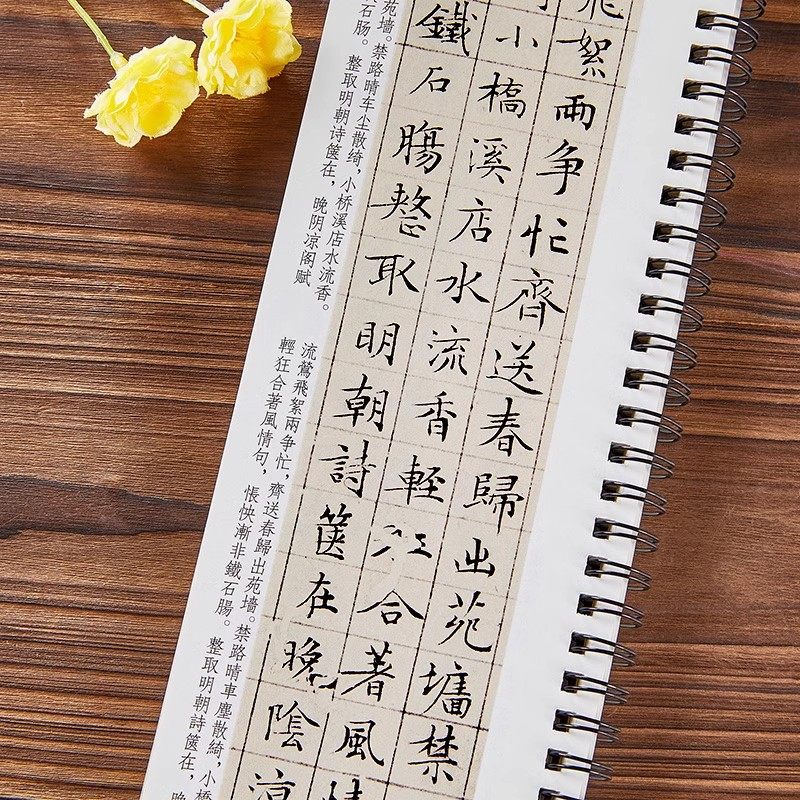 飛絮兩争忙齊送春歸出苑墻禁
小橋溪店水流香輕合著風情
鐵石腸整取明朝詩篋在晚陰涼
苑墙。禁路晴车尘散绮，小桥溪店水流香。
石肠。整取明朝诗箧在，晚阴凉阁赋
流鶯飛絮兩争忙，齊送春歸出苑墻。禁路晴車塵散綺，小橋
輕狂合著風情句，悵怏漸非鐵石腸。整取明朝詩篋在，晚